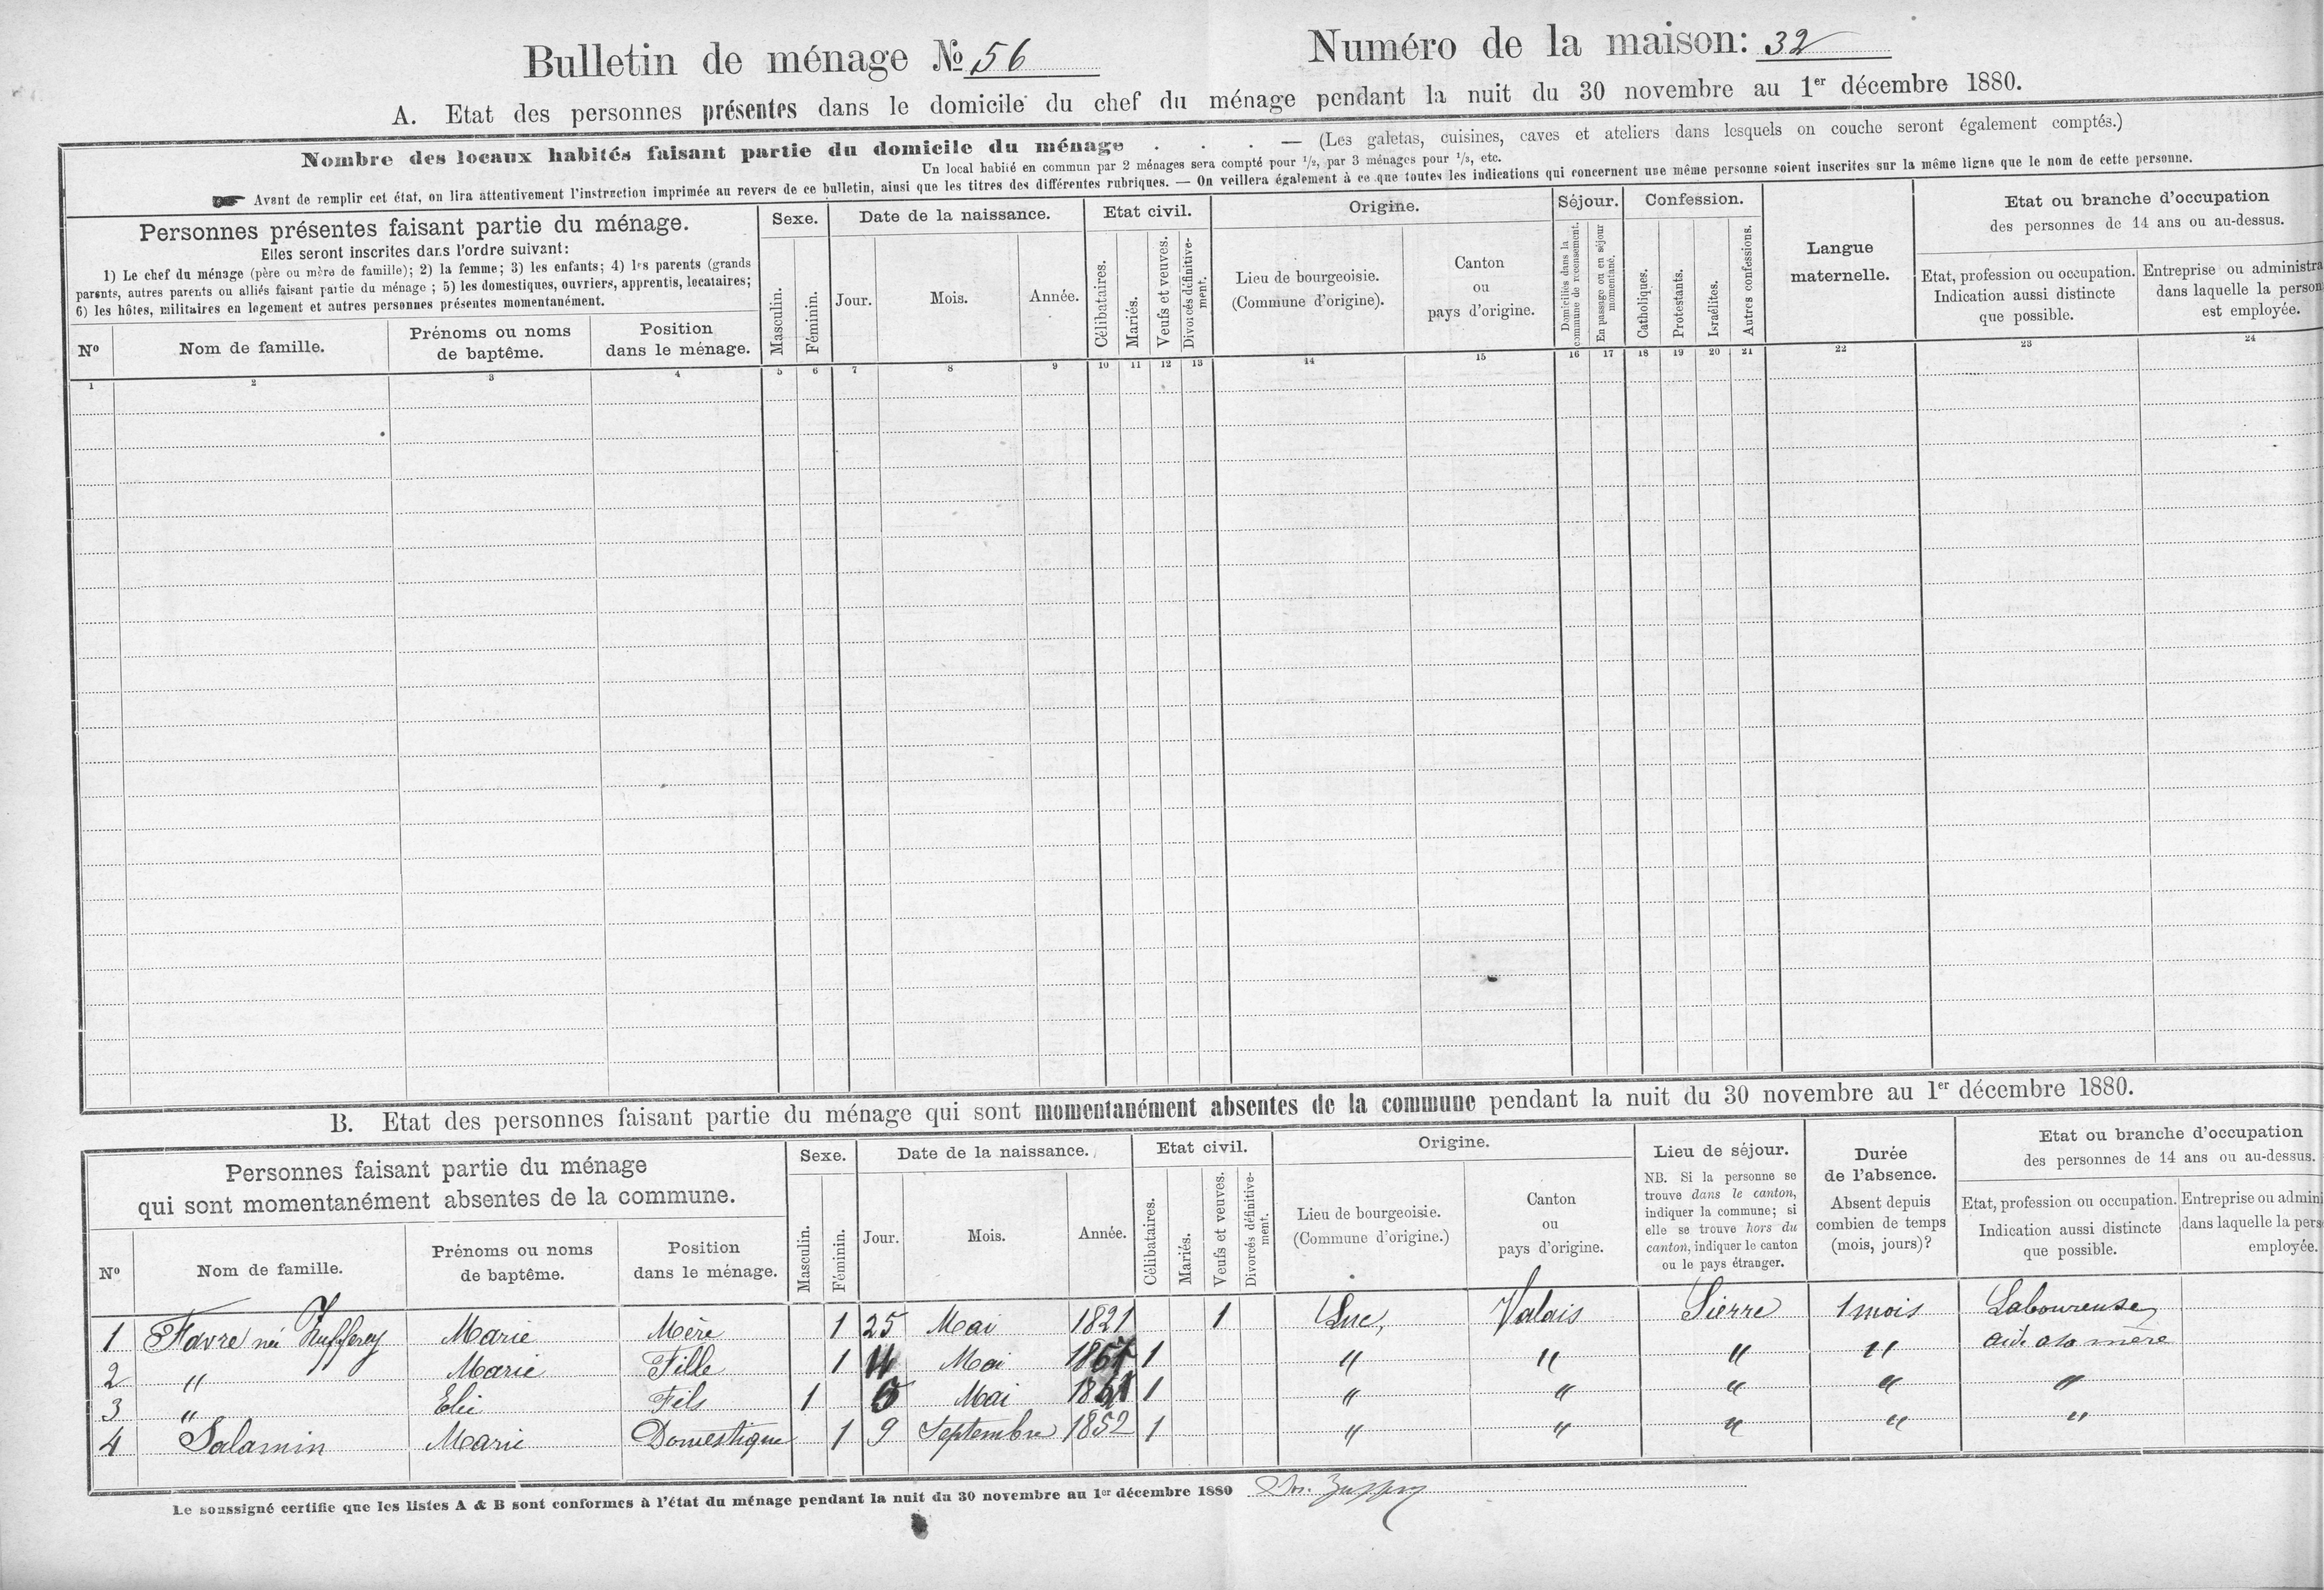 Bulletin de ménage № 56 Numéro de la maison: 32
A. Etat des personnes présentes dans le domicile du chef du ménage pendant la nuit du 30 novembre au 1er décembre 1880.
Nombre des locaux habités faisant partie du domicile du ménage . . . — (Les galetas, cuisines, caves et ateliers dans lesquels on couche seront également comptés.)
Un local habité en commun par 2 ménages sera compté pour 1/2, par 3 ménages pour 1/3, etc.
☛ Avant de remplir cet état, on lira attentivement l'instruction imprimée au revers de ce bulletin, ainsi que les titres des différentes rubriques. — On veillera également à ce que toutes les indications qui concernent une même personne soient inscrites sur la même ligne que le nom de cette personne.
Personnes présentes faisant partie du ménage.
Elles seront inscrites dans l'ordre suivant:
1) Le chef du ménage (père ou mère de famille); 2) la femme; 3) les enfants; 4) les parents (grands
parents, autres parents ou alliés faisant partie du ménage ; 5) les domestiques, ouvriers, apprentis, locataires;
6) les hôtes, militaires en logement et autres personnes présentes momentanément.
No
Nom de famille.
Prénoms ou noms
de baptême.
Position
dans le ménage.
Sexe.
Masculin.
Féminin.
Date de la naissance.
Jour.
Mois.
Année.
Etat civil.
Célibataires.
Mariés.
Veufs et veuves.
Divorcés définitive-
ment.
Origine.
Lieu de bourgeoisie.
(Commune d'origine).
Canton
ou
pays d'origine.
Séjour.
Domiciliés dans la
commune de recensement.
En passage ou en séjour
momentané.
Confession.
Catholiques.
Protestants.
Israélites.
Autres confessions.
Langue
maternelle.
Etat ou branche d'occupation
des personnes de 14 ans ou au-dessus.
Etat, profession ou occupation.
Indication aussi distincte
que possible.
Entreprise ou administra
dans laquelle la person
est employée.
1 2 3 4 5 6 7 8 9 10 11 12 13 14 15 16 17 18 19 20 21 22 23 24
B. Etat des personnes faisant partie du ménage qui sont momentanément absentes de la commune pendant la nuit du 30 novembre au 1er décembre 1880.
Personnes faisant partie du ménage
qui sont momentanément absentes de la commune.
No
Nom de famille.
Prénoms ou noms
de baptême.
Position
dans le ménage.
Sexe.
Masculin.
Féminin.
Date de la naissance.
Jour.
Mois.
Année.
Etat civil.
Célibataires.
Mariés.
Veufs et veuves.
Divorcés définitive-
ment.
Origine.
Lieu de bourgeoisie.
(Commune d'origine.)
Canton
ou
pays d'origine.
Lieu de séjour.
NB. Si la personne se
trouve dans le canton,
indiquer la commune; si
elle se trouve hors du
canton, indiquer le canton
ou le pays étranger.
Durée
de l'absence.
Absent depuis
combien de temps
(mois, jours)?
Etat ou branche d'occupation
des personnes de 14 ans ou au-dessus.
Etat, profession ou occupation.
Indication aussi distincte
que possible.
Entreprise ou admin
dans laquelle la pers
employée.
1 Favre née Zufferey Marie Mère 1 25 Mai 1821 1 Luc, Valais Sierre 1 mois Laboureuse
2 " Marie Fille 1 Mai 1 " " " " aid. a sa mère
3 " Elie Fils 1 Mai 1 " " " " "
4 Salamin Marie Domestique 1 9 Septembre 1852 1 " " " " "
Le soussigné certifie que les listes A & B sont conformes à l'état du ménage pendant la nuit du 30 novembre au 1er décembre 1880